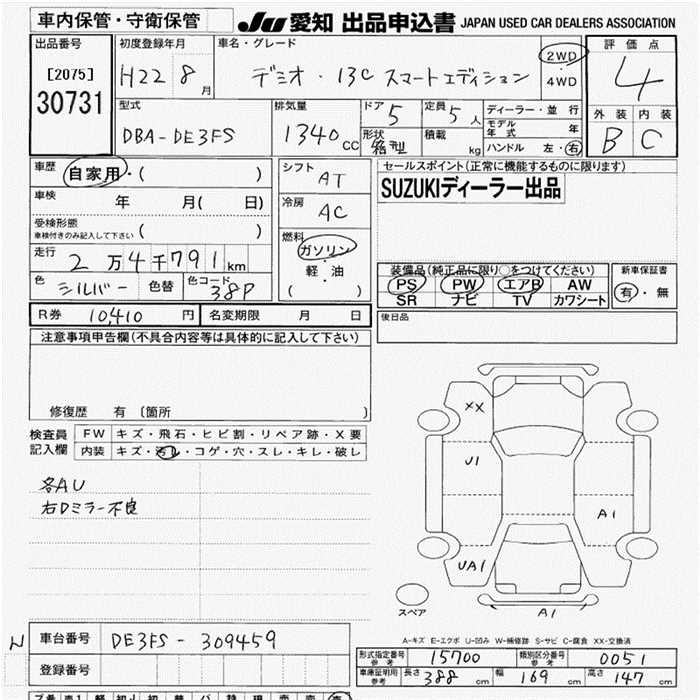 車内保管・守衛保管 JU 愛知 出品申込書 JAPAN USED CAR DEALERS ASSOCIATION
出品番号 初度登録年月 車名・グレード 2WD ・ 4WD 評価点
[2075] H22 8月 デミオ・13C スマートエディション 4
30731
型式 排気量 ドア 5 定員 5人 ディーラー・並行 外装 内装
DBA-DE3FS 1340CC 形状 箱型 積載 kg モデル年式 年 B C
ハンドル 左・右
車歴 自家用・( ) シフト AT セールスポイント(正常に機能するものに限ります)
車検 年 月( 日) 冷房 AC SUZUKIディーラー出品
受検形態 ( )
車検付きのみ記入して下さい
走行 2万4千791km 燃料 ガソリン・軽・油 ( )
装備品(純正品に限り○をつけてください) 新車保証書
色 シルバー 色替 色コード 38P PS PW エアB AW 有・無
SR ナビ TV カワシート
R券 10,410円 名変期限 月 日 後日品
注意事項申告欄(不具合内容等は具体的に記入して下さい)
修復歴 有 〔箇所 〕
検査員記入欄 FW キズ・飛石・ヒビ割・リペア跡・X要
内装 キズ・汚レ・コゲ・穴・スレ・キレ・破レ
各AU
右Dミラー不良
XX
U1
A1
UA1
A1
スペア
A-キズ E-エクボ U-凹み W-補修跡 S-サビ C-腐食 XX-交換済
N 車台番号 DE3FS-309459
登録番号
形式指定番号 参考 15700 類別区分番号 参考 0051
車庫証明用 参考 長さ 388cm 幅 169cm 高さ 147cm